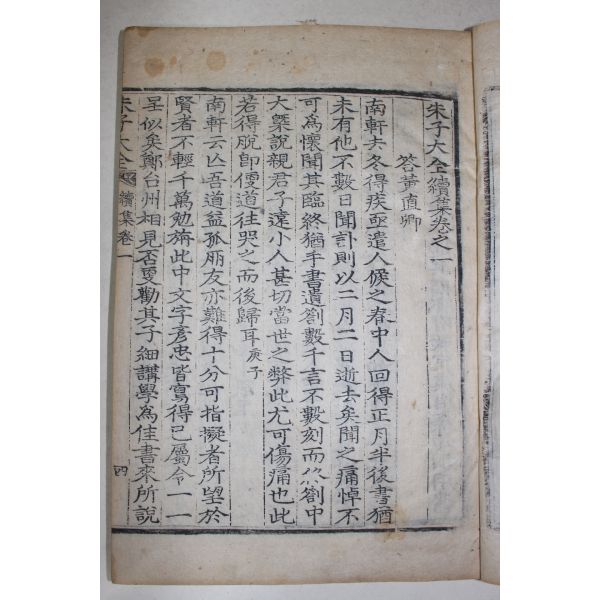 朱子大全續集卷之一
答黃直卿
南軒去冬得疾亟遣人候之春中人回得正月半後書猶
未有他不數日聞訃則以二月二日逝去矣聞之痛悼不
可為懷聞其臨終猶手書遺劄數千言不數刻而終劄中
大槩說親君子遠小人甚切當世之弊此尤可傷痛也此
若得脫卽便道往哭之而後歸耳庚子
南軒云亡吾道益孤朋友亦難得十分可指擬者所望於
賢者不輕千萬勉旃此中文字彥忠皆寫得已屬令一一
呈似矣鄭台州相見否更勸其子細講學為佳書來所說
朱子大全 續集卷一
四